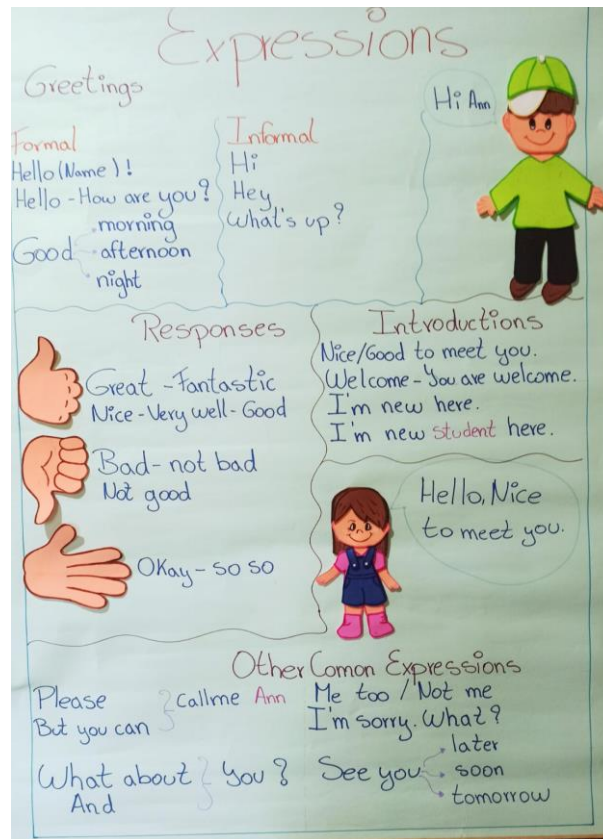 Expressions
Greetings
Formal
Hello (Name)!
Hello - How are you?
Good morning
afternoon
night
Informal
Hi
Hey
What's up?
Hi Ann
Responses
Great - Fantastic
Nice - Very well - Good
Bad - not bad
Not good
Okay - so so
Introductions
Nice/Good to meet you.
Welcome - You are welcome.
I'm new here.
I'm new student here.
Hello, Nice
to meet you.
Other Comon Expressions
Please
But you can
Call me Ann
What about
And
You?
Me too / Not me
I'm sorry. What?
See you later
soon
tomorrow